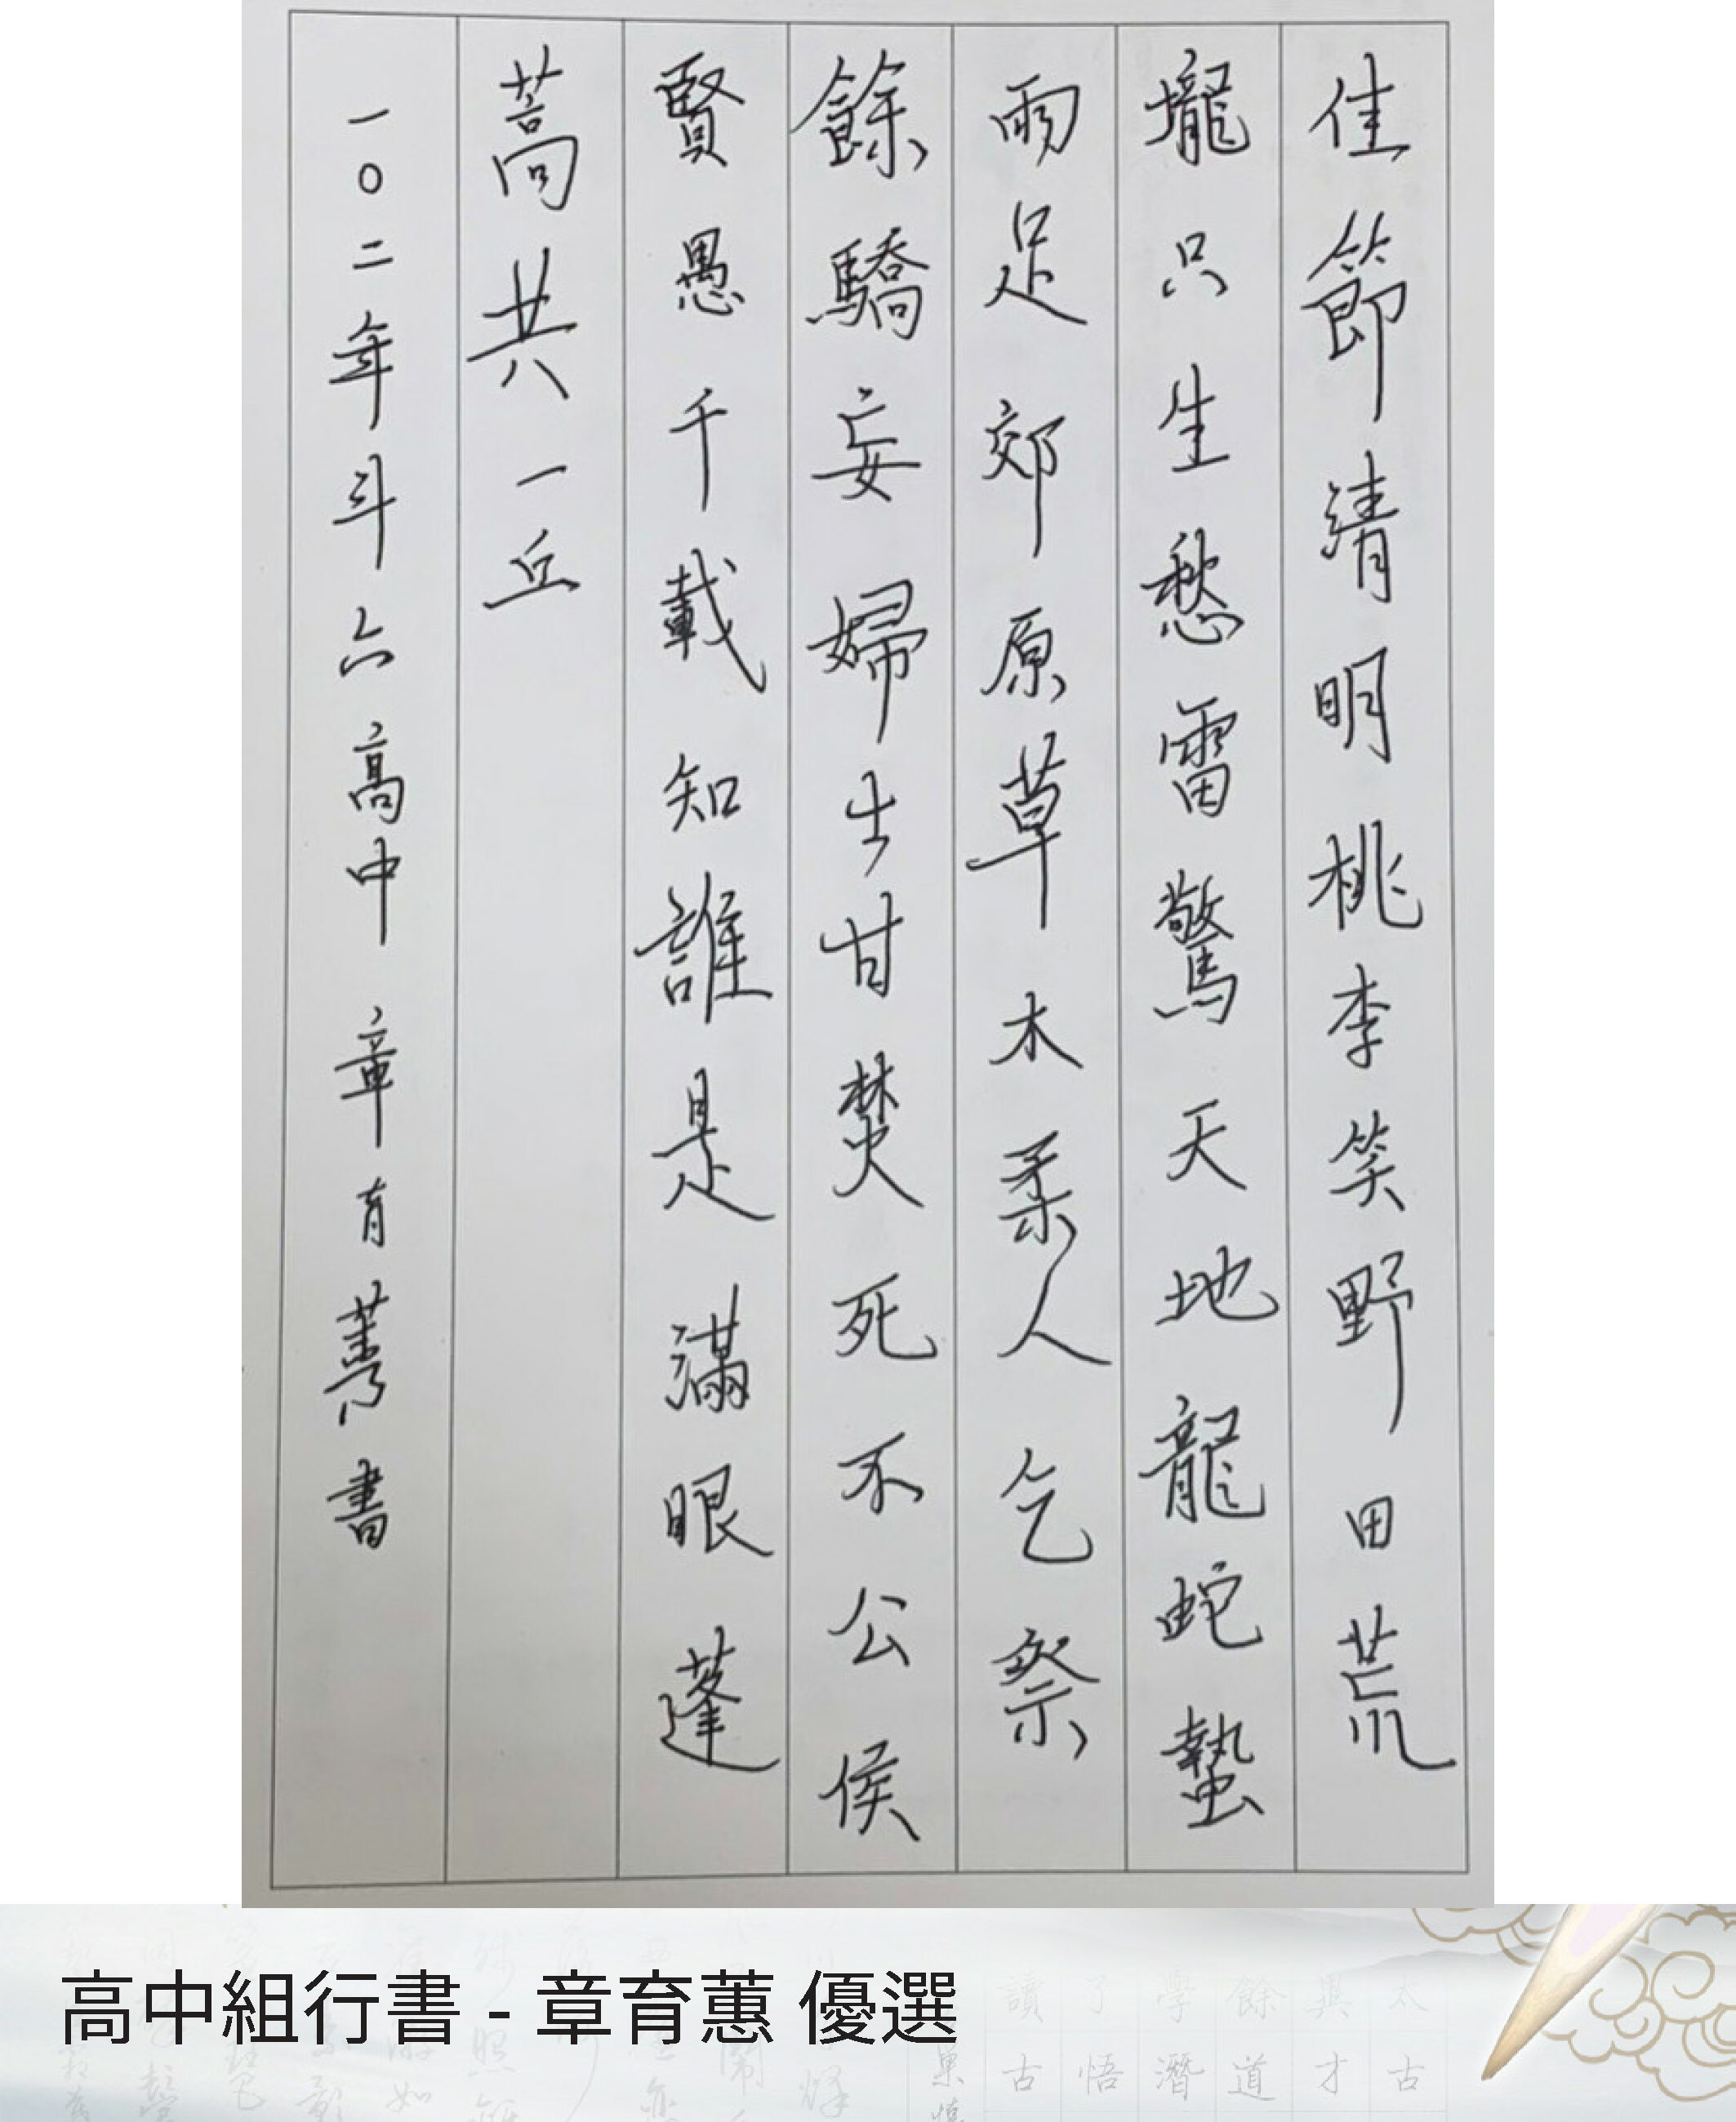 佳節清明桃李笑野田荒
壠只生愁雷驚天地龍蛇蟄
雨足郊原草木柔人乞祭
餘驕妄婦士甘焚死不公侯
賢愚千載知誰是滿眼蓬
蒿共一丘
一〇二年斗六高中 章育書
高中組行書 - 章育蕙 優選